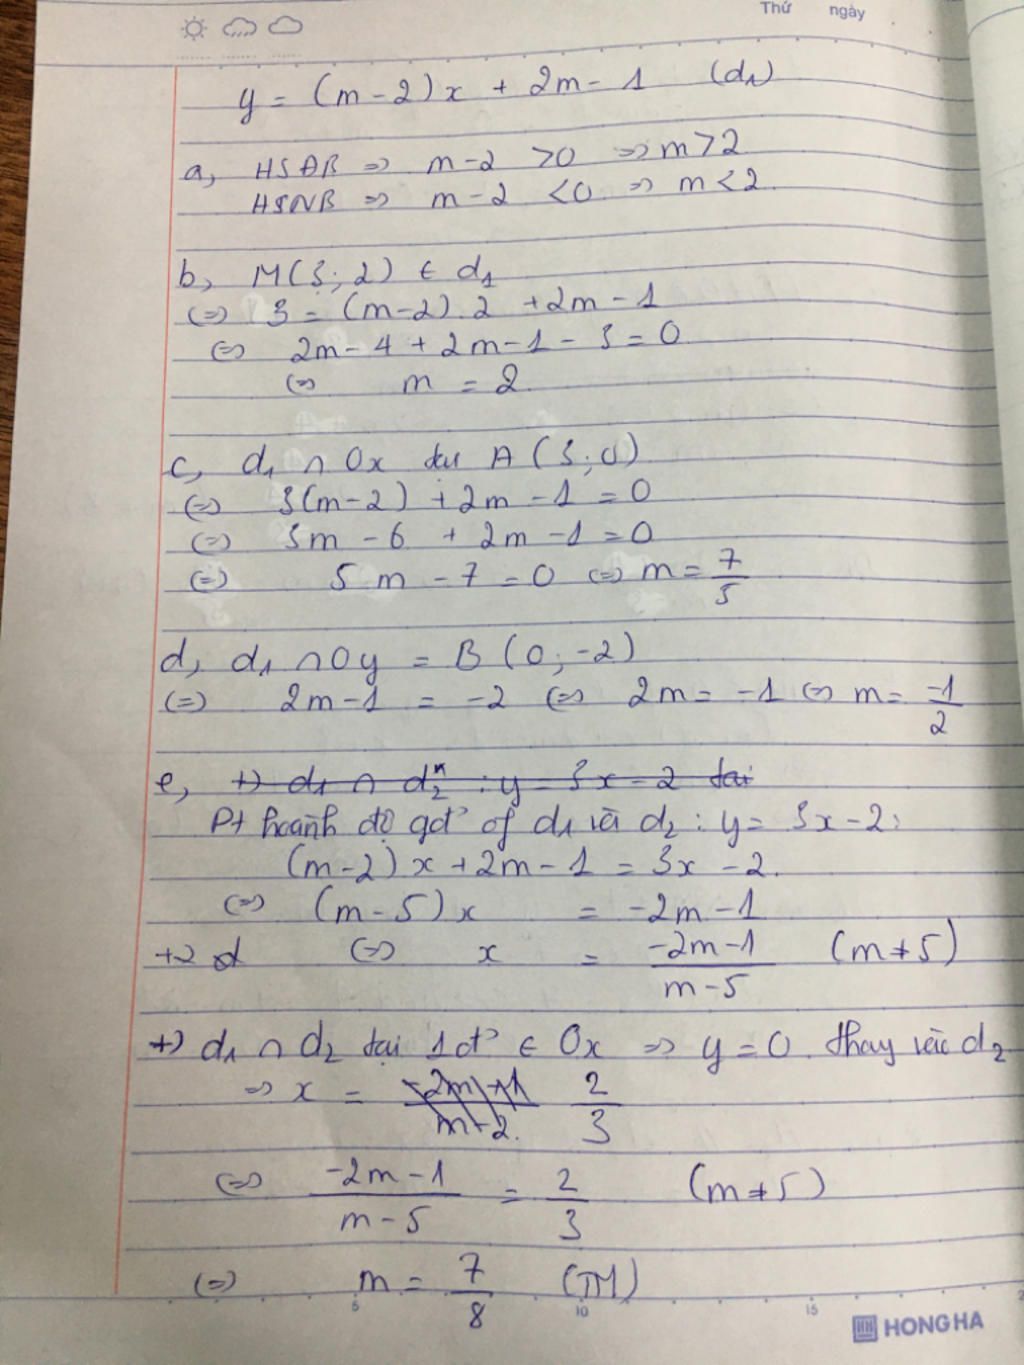 Thứ ngày
y = (m-2)x + 2m - 1 (d₁)
a, HSĐB => m-2 >0 => m>2
HSNB => m-2 <0 => m<2
b, M(3; 2) ∈ d₁
<=> 3 = (m-2).2 + 2m - 1
<=> 2m - 4 + 2m - 1 - 3 = 0
<=> m = 2.
c, d₁ ∩ Ox A (3; 0)
<=> 3(m-2) + 2m - 1 = 0
<=> 3m - 6 + 2m - 1 = 0
<=> 5m - 7 = 0 <=> m = 7/5
d, d₁ ∩ Oy = B (0; -2)
<=> 2m - 1 = -2 <=> 2m = -1 <=> m = -1/2
e, +) d₁ ∩ d₂ : y = 3x - 2 tại
Pt hoành độ gđ of d₁ và d₂ : y = 3x - 2:
(m-2)x + 2m - 1 = 3x - 2.
<=> (m-5)x = -2m - 1
<=> x = (-2m-1)/(m-5) (m≠5)
+) d₁ ∩ d₂ tại 1đ ∈ Ox => y = 0. Thay vào d₂
=> x = 2/3
<=> (-2m-1)/(m-5) = 2/3 (m≠5)
<=> m = 7/8 (TM)
5 10 15
HONG HA